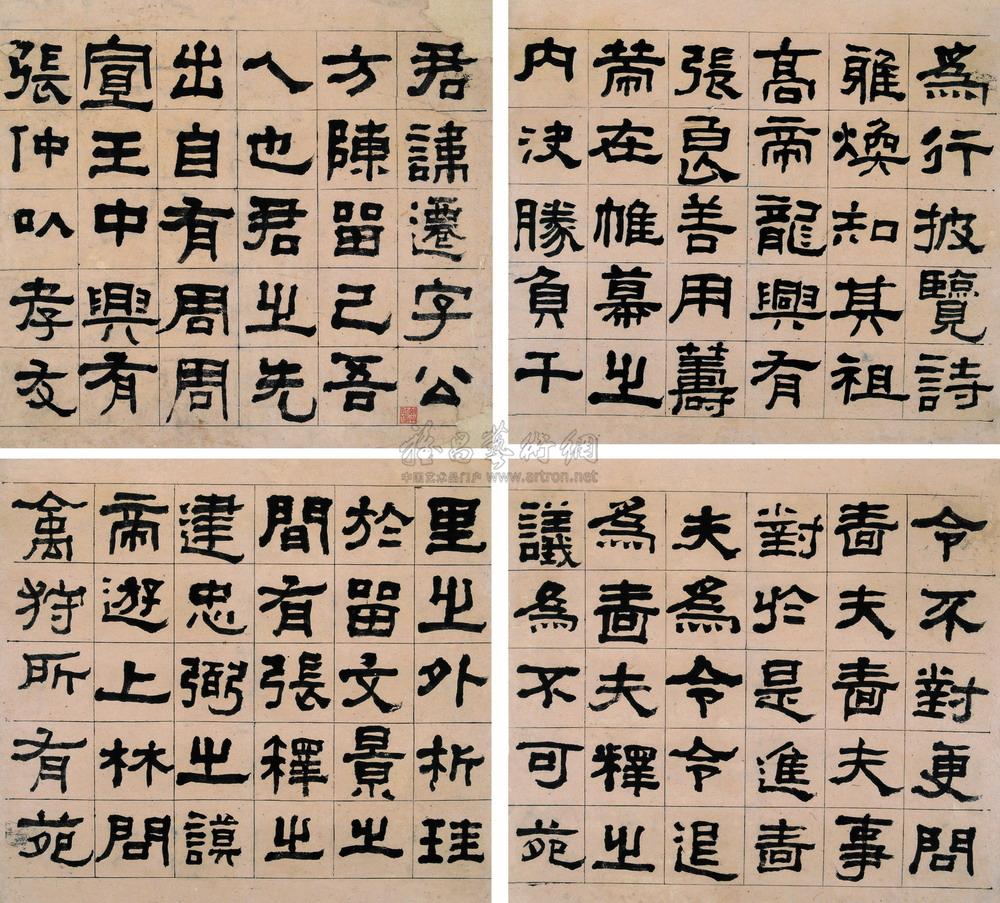 君諱遷字公
方陳留己吾
人也君之先
出自有周周
宣王中興有
張仲以孝友
為行披覽詩
雅煥知其祖
高帝龍興有
張良善用籌
策在帷幕之
內決勝負千
里之外析珪
於留文景之
間有張釋之
建忠弼之謨
帝遊上林問
禽狩所有苑
令不對更問
嗇夫嗇夫事
對於是進嗇
夫為令令退
為嗇夫釋之
議為不可苑
雅昌藝術網
中国艺术品门户 www.artron.net